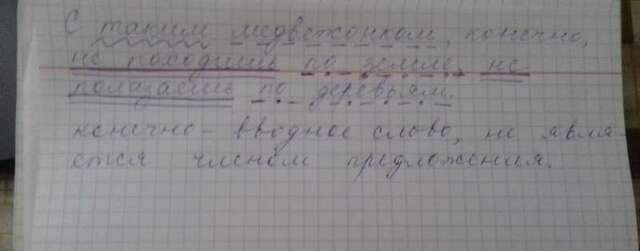 С таким медвежонком, конечно,
не походишь по земле, не
полазаешь по деревьям.
конечно - вводное слово, не явля-
ется членом предложения.